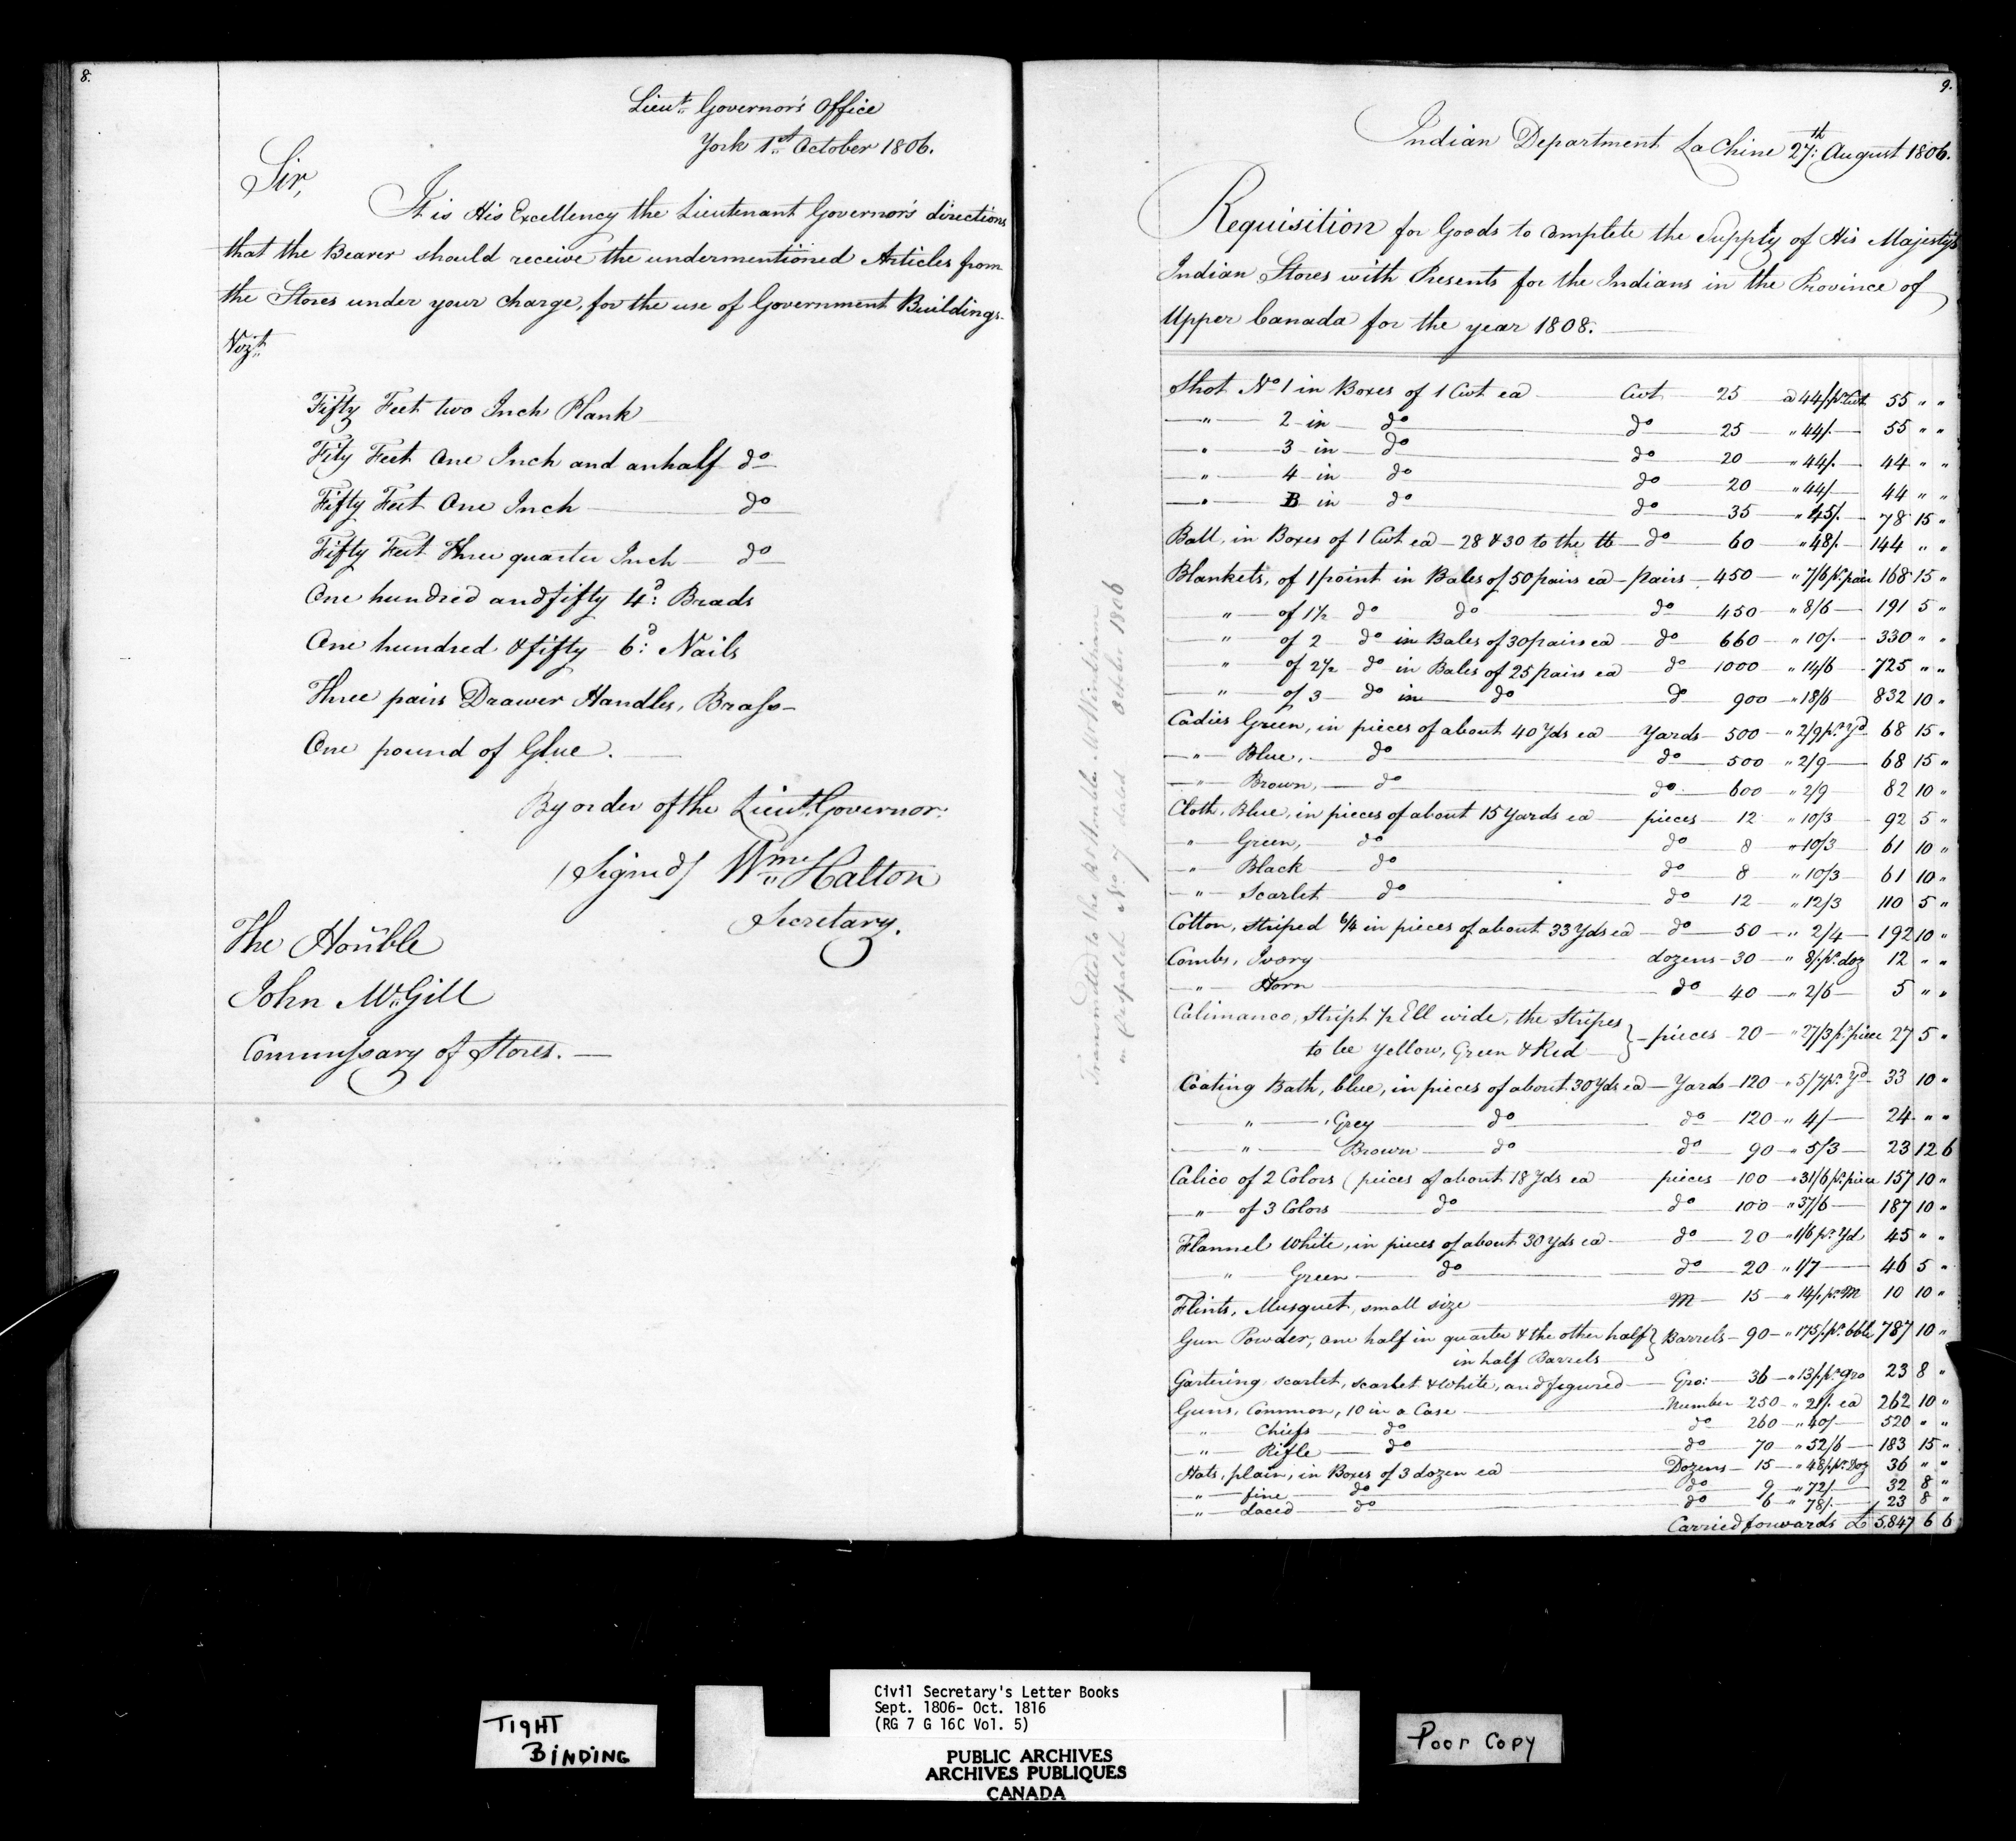 8.
Lieut. Governor's Office
York 1st October 1806.
Sir,
It is His Excellency the Lieutenant Governor's directions
that the Bearer should receive the undermentioned Articles from
the Stores under your charge, for the use of Government Buildings.
Vizt.
Fifty Feet two Inch Plank
Fity Feet One Inch and anhalf do
Fifty Feet One Inch do
Fifty Feet Three quarter Inch do
One hundred and fifty 4d: Brads
One hundred & fifty 6d: Nails
Three pairs Drawer Handles, Brass
One pound of Glue.
By order of the Lieut. Governor.
(Signed) Wm. Halton
Secretary.
The Honble
John McGill
Commissary of Stores.
9.
Indian Department La Chine 27th: August 1806.
Requisition for Goods to complete the Supply of His Majesty's
Indian Stores with Presents for the Indians in the Province of
Upper Canada for the year 1808.
Shot No 1 in Boxes of 1 Cwt ea Cwt 25 a 44/ pr Cwt 55 " "
" 2 in do do 25 " 44/. 55 " "
" 3 in do do 20 " 44/. 44 " "
" 4 in do do 20 " 44/ 44 " "
" B in do do 35 " 45/. 78 15 "
Ball, in Boxes of 1 Cwt ea 28 & 30 to the lb do 60 " 48/. 144 " "
Blankets, of 1 point in Bales of 50 pairs ea pairs 450 " 7/6 pr pair 168 15 "
" of 1½ do do do 450 " 8/6 191 5 "
" of 2 do in Bales of 30 pairs ea do 660 " 10/. 330 " "
" of 2½ do in Bales of 25 pairs ea do 1000 " 14/6 725 " "
" of 3 do in do do 900 " 18/6 832 10 "
Cadies Green, in pieces of about 40 Yds ea Yards 500 " 2/9 pr Yd 68 15 "
" Blue, do do 500 " 2/9 68 15 "
" Brown, do do 600 " 2/9 82 10 "
Cloth, Blue, in pieces of about 15 Yards ea pieces 12 " 10/3 92 5 "
" Green, do do 8 " 10/3 61 10 "
" Black do do 8 " 10/3 61 10 "
" Scarlet do do 12 " 12/3 110 5 "
Cotton, striped 6/4 in pieces of about 33 Yds ea do 50 " 2/4 192 10 "
Combs, Ivory dozens 30 " 8/. pr. doz 12 " "
" Horn do 40 " 2/6 5 " "
Calimanco, stript ½ Ell wide, the Stripes
to be Yellow, Green & Red } pieces 20 " 27/3 pr piece 27 5 "
Coating Bath, blue, in pieces of about 30 Yds ea Yards 120 " 5/7 pr. Yd 33 10 "
" Grey do do 120 " 4/ 24 " "
" Brown do do 90 " 5/3 23 12 6
Calico of 2 Colors (pieces of about 18 Yds ea pieces 100 " 31/6 pr. piece 157 10 "
" of 3 Colors do do 100 " 37/6 187 10 "
Flannel White, in pieces of about 30 Yds ea do 20 " 1/6 pr Yd 45 " "
" Green do do 20 " 1/7 46 5 "
Flints, Musquet, small size M 15 " 14/. pr. M 10 10 "
Gun Powder, one half in quarter & the other half } Barrels 90 " 175/. pr. bble 787 10 "
in half Barrels
Gartering, scarlet, scarlet & white, and figured Gro: 36 " 13/ pr gro 23 8 "
Guns, Common, 10 in a Case Number 250 " 21/. ea 262 10 "
" Chiefs do do 260 " 40/ 520 " "
" Rifle do do 70 " 52/6 183 15 "
Hats, plain, in Boxes of 3 dozen ea Dozens 15 " 48/ pr. Doz 36 " "
" fine do do 9 " 72/ 32 8 "
" Laced do do 6 " 78/. 23 8 "
Carried forwards £ 5,847 6 6
Transmitted to the Rt Honble
October 1806
TIGHT
BINDING
Civil Secretary's Letter Books
Sept. 1806- Oct. 1816
(RG 7 G 16C Vol. 5)
PUBLIC ARCHIVES
ARCHIVES PUBLIQUES
CANADA
Poor Copy